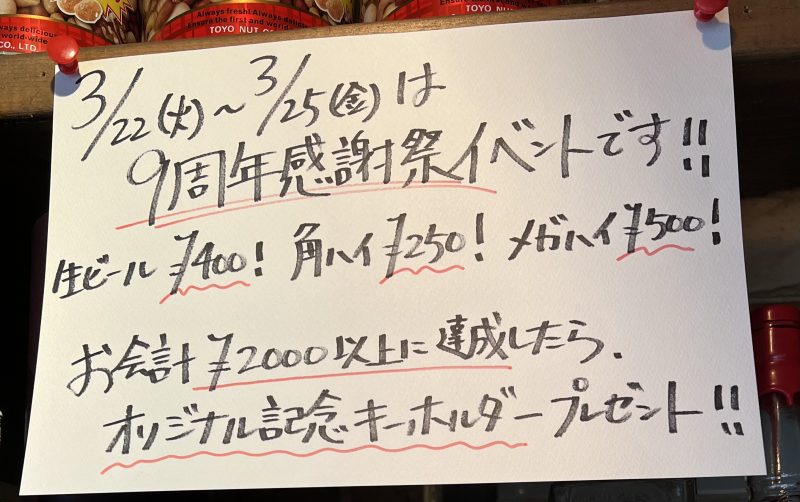 Always fresh! Always delicious!
Ensure the first and world-wide
TOYO NUT CO., LTD.
3/22(火)～3/25(金)は
9周年感謝祭イベントです!!
生ビール ¥400! 角ハイ ¥250! メガハイ ¥500!
お会計 ¥2000以上に達成したら、
オリジナル記念キーホルダープレゼント!!